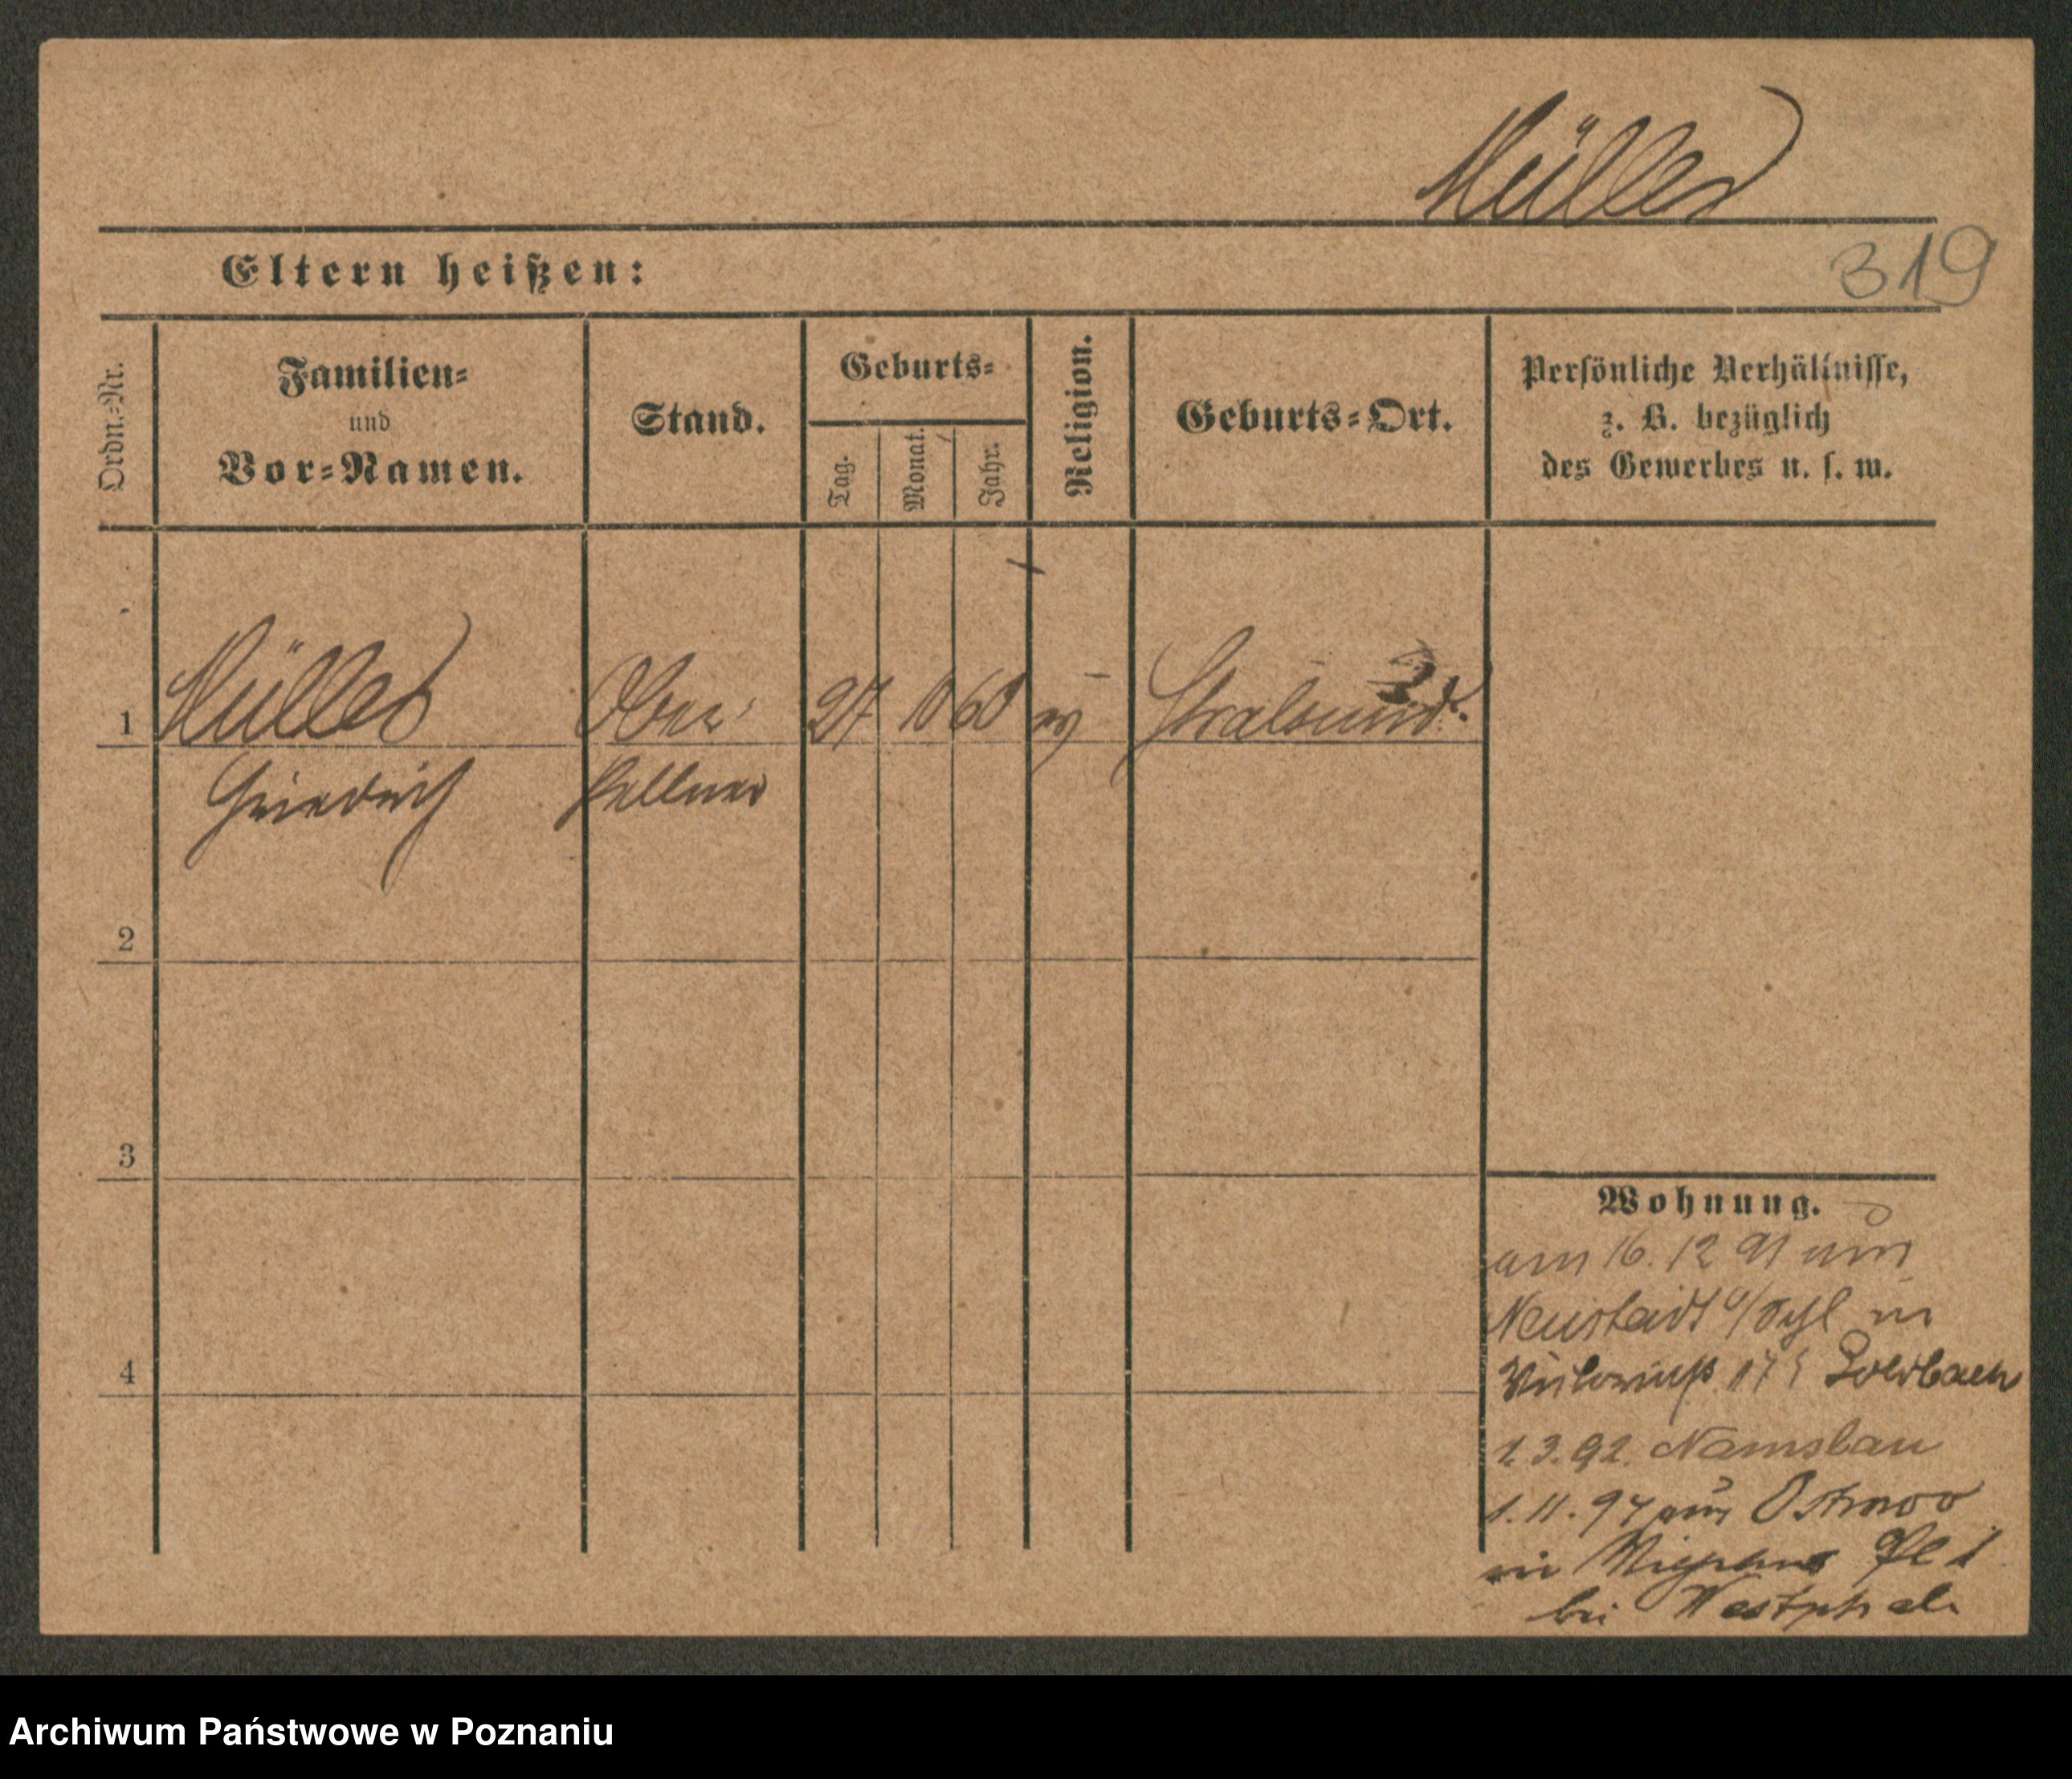 Müller
319
Eltern heißen:
Ordn.-Nr.
Familien-
und
Vor-Namen.
Stand.
Geburts-
Tag.
Monat.
Jahr.
Religion.
Geburts-Ort.
Persönliche Verhältnisse,
z. B. bezüglich
des Gewerbes u. s. w.
1
Müller
Ober-
27 10 60
Stralsund.
Friedrich
Kellner
2
3
4
Wohnung.
am 16. 12 91 aus
Neustadt in
Goldbach
1.3.92. Namslau
1.11.94 aus Ostrowo
in Pl 1
bei Westphal.
Archiwum Państwowe w Poznaniu